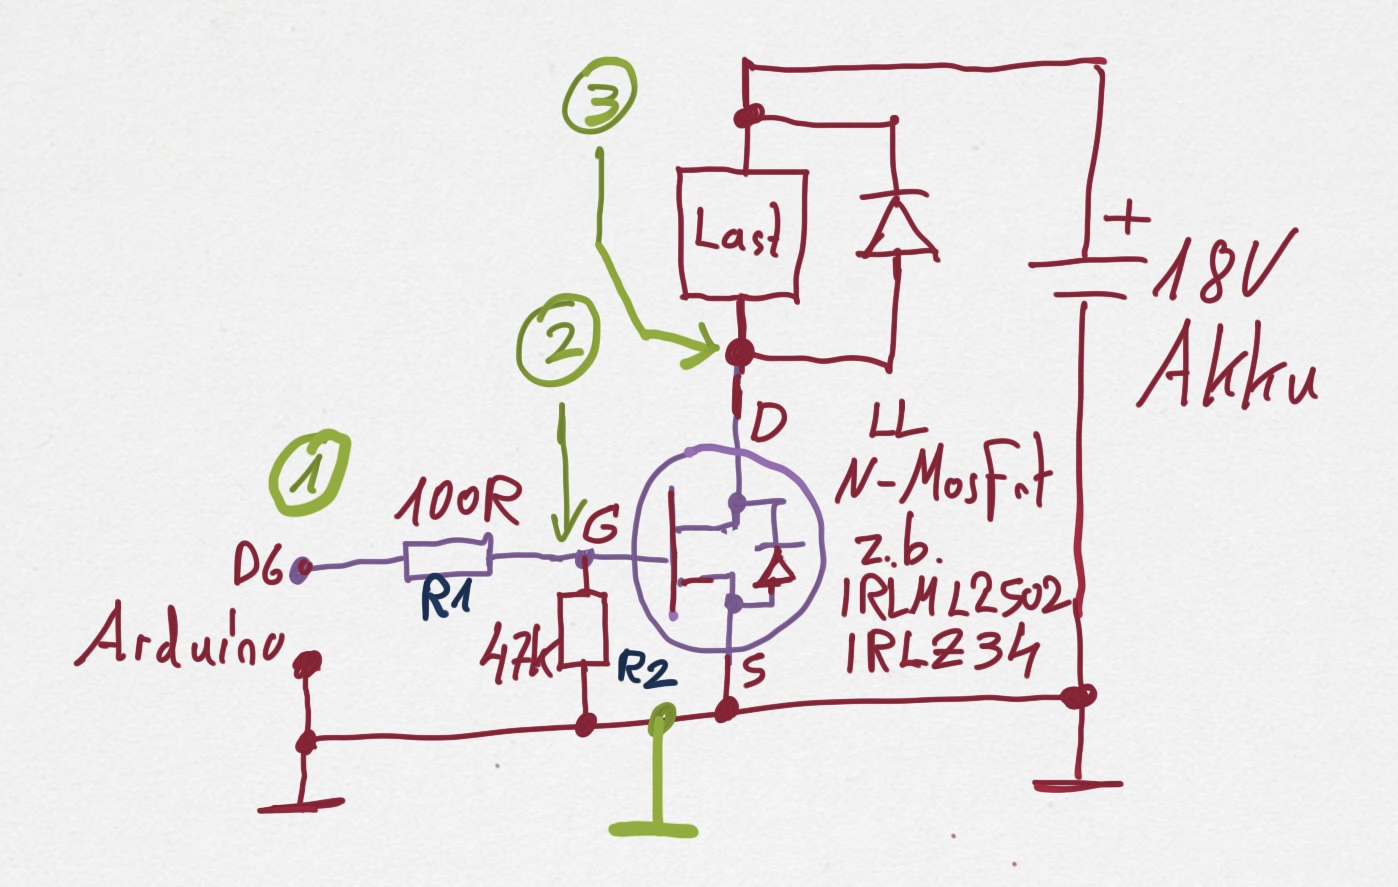 3
+
Last
18V
Akku
2
D
LL
N-Mosfet
z.b.
IRLML2502
IRLZ34
1
100R
G
D6
R1
Arduino
47k
R2
S